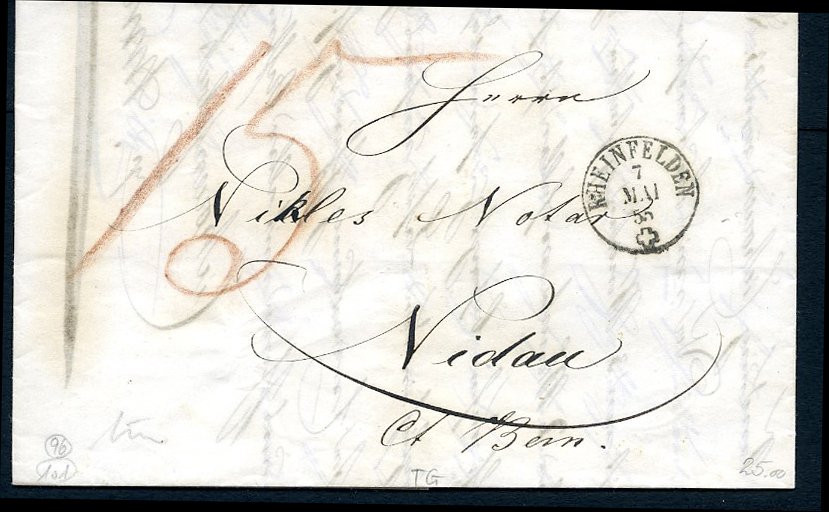 15
Herrn
RHEINFELDEN
7
MAI
55
Nikles Notar
Nidau
Ct Bern.
96
101
TG
25.00